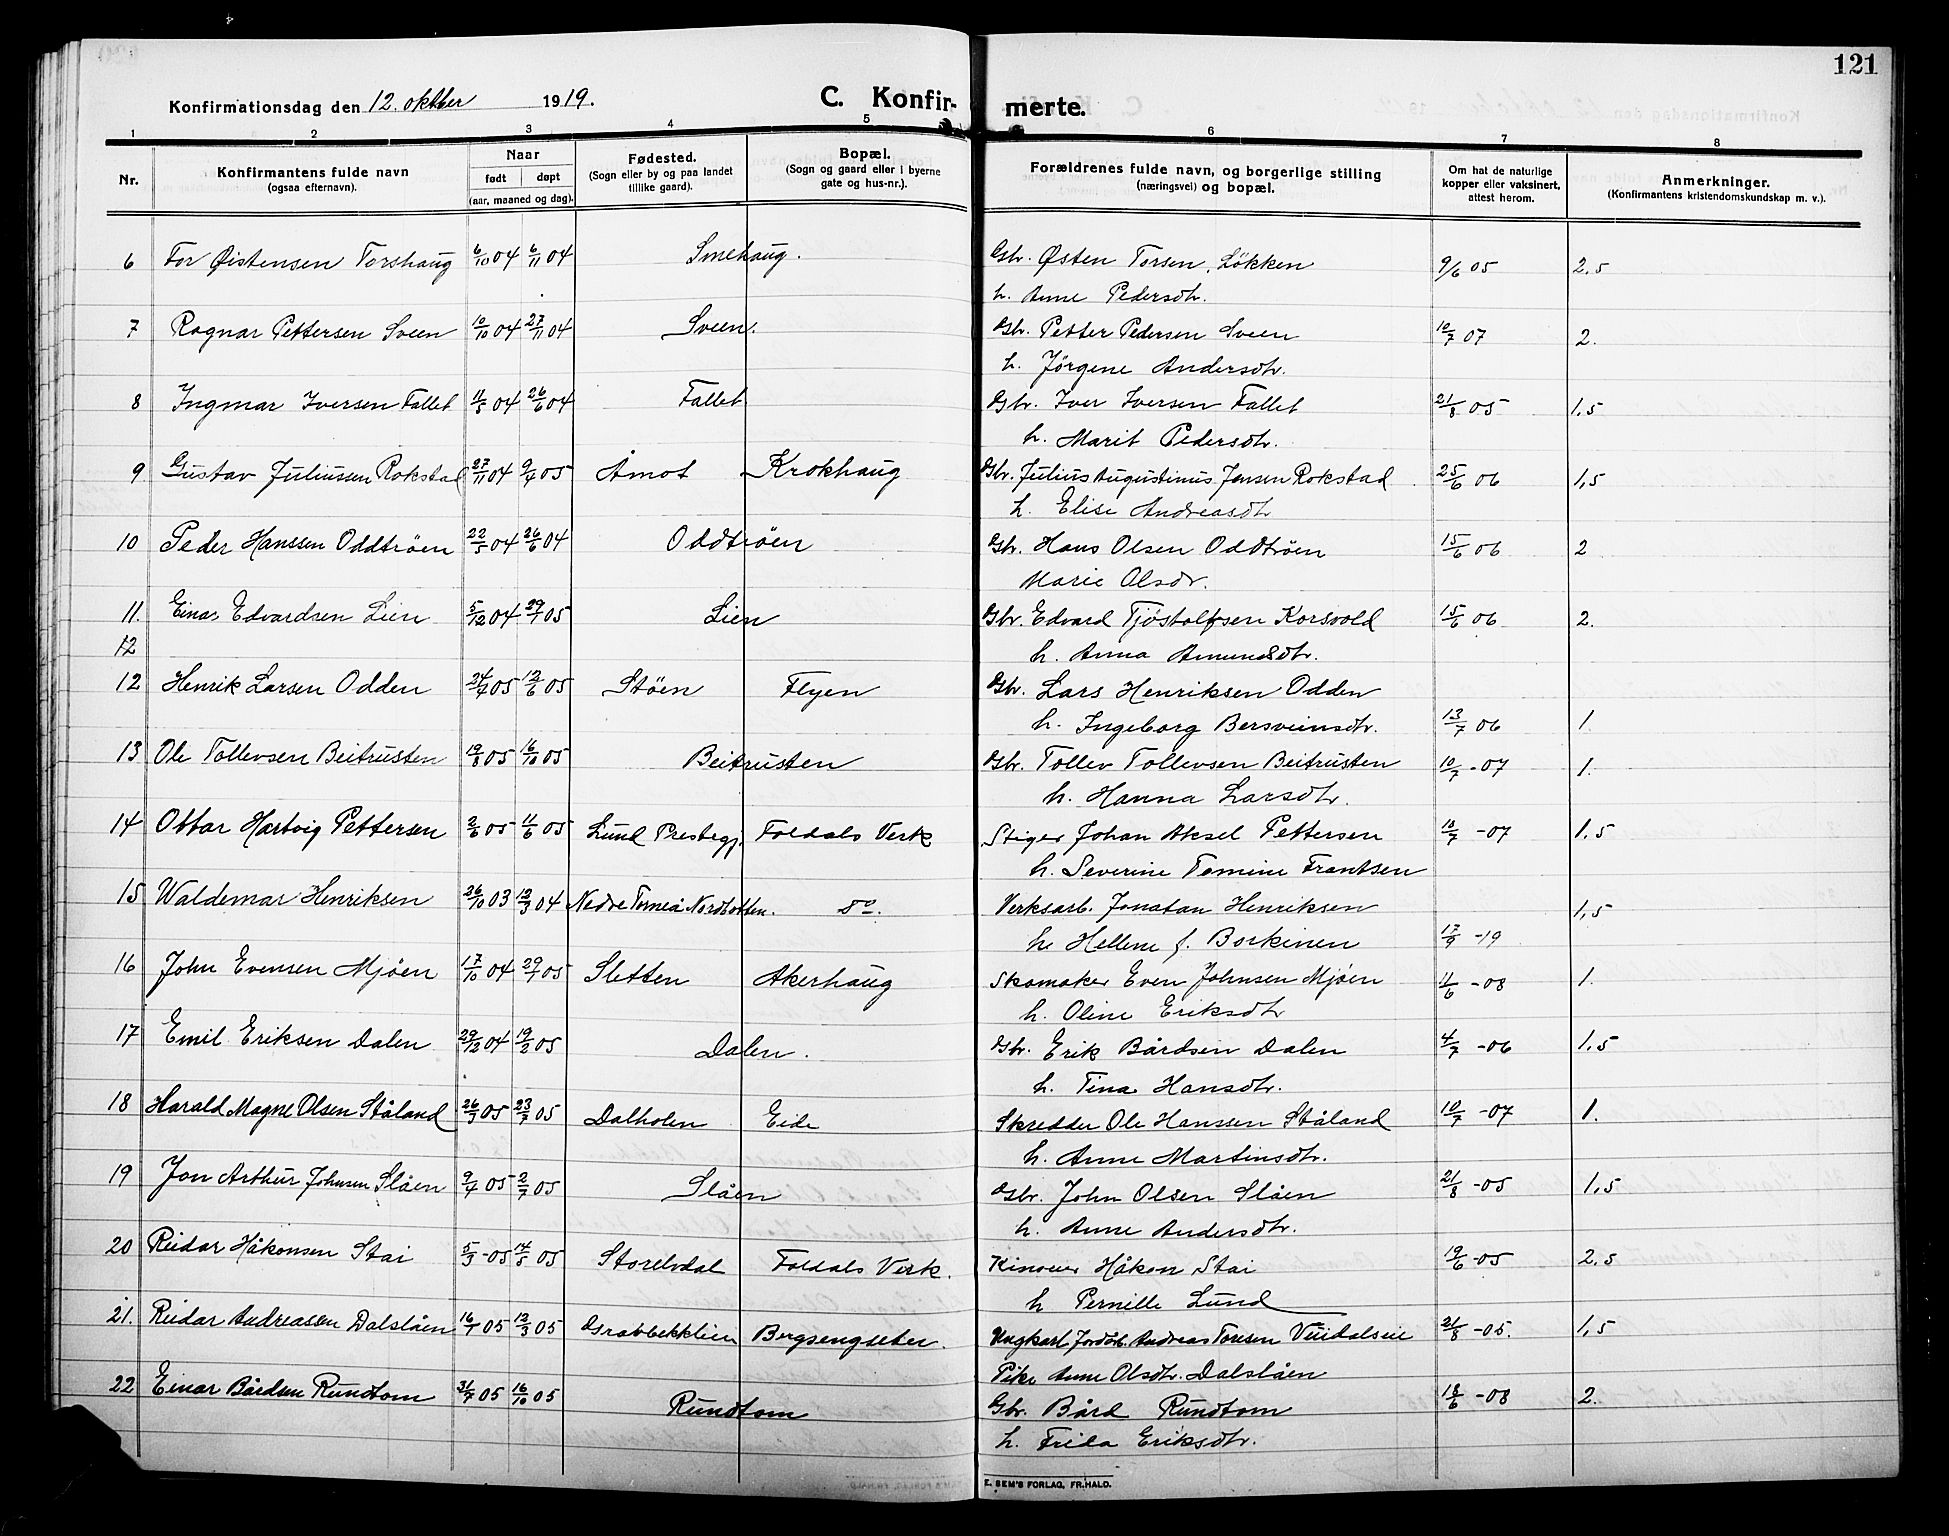 121
Konfirmationsdag den 12. oktber 1919.
C. Konfir- merte.
1 2 3 4 5 6 7 8
Nr.
Konfirmantens fulde navn
(ogsaa efternavn).
Naar
født døpt
(aar, maaned og dag).
Fødested.
(Sogn eller by og paa landet
tillike gaard).
Bopæl.
(Sogn og gaard eller i byerne
gate og hus-nr.).
Forældrenes fulde navn, og borgerlige stilling
(næringsvei) og bopæl.
Om hat de naturlige
kopper eller vaksinert,
attest herom.
Anmerkninger.
(Konfirmantens kristendomskundskap m. v.).
6 Tor Øistensen Torshaug 6/10 04 6/11 04 Smehaug. Gbr. Østen Torsen, Løkken 9/6 05 2,5
h. Anne Pedersdtr.
7 Ragnar Pettersen Sveen 10/10 04 27/11 04 Sveen. Gbr. Petter Pedersen Sveen 10/7 07 2.
h. Jørgene Andersdtr.
8 Ingmar Iversen Fallet 11/5 04 26/6 04 Fallet Gbr. Iver Iversen Fallet 21/8 05 1,5
h. Marit Pedersdtr.
9 Gustav Juliussen Rokstad 27/11 04 9/4 05 Åmot Krokhaug Gbr. Julius Augustinus Jensen Rokstad 25/6 06 1,5
h. Elise Andreasdt
10 Peder Hanssen Oddtrøen 22/5 04 26/6 04 Oddtrøen Gbr. Hans Olsen Oddtrøen 15/6 06 2
Marie Olsdr.
11. Einar Edvardsen Lien 5/12 04 29/1 05 Lien Gbr. Edvard Tjøstolfsen Korsvold 15/6 06 2.
12 h. Anna Amundsdtr.
12 Henrik Larsen Odden 24/4 05 12/6 05 Støen Flyen Gbr. Lars Henriksen Odden
h. Ingeborg Bersveinsdtr. 13/7 06 1.
13 Ole Tollevsen Beitrusten 19/8 05 16/10 05 Beitrusten Gbr. Tollev Tollevsen Beitrusten 10/7 -07 1.
h. Hanna Larsdtr.
14 Ottar Hartvig Pettersen 2/6 05 11/6 05 Lund Prestegj. Foldals Verk Stiger Johan Aksel Pettersen 10/7 -07 1,5
h. Severine Tomine Frantsen
15 Waldemar Henriksen 26/10 03 12/3 04 Nedre Torneå Nordbotten. do. Verksarb. Jonatan Henriksen 1,5
h. Hellene f. Borkinen 17/9 -19
16 John Evensen Mjøen 17/10 04 29/1 05 Sletten Akerhaug Skomaker Even Johnsen Mjøen 11/6 -08 1.
h. Oline Eriksdtr
17 Emil Eriksen Dalen 29/12 04 19/2 05 Dalen. Gbr. Erik Bårdsen Dalen 4/7 -06 1,5
h. Tina Hansdtr.
18 Harald Magne Olsen Ståland 26/3 05 23/7 05 Dalholen Eide Skredder Ole Hanssen Ståland 10/7 -07 1.
h. Anne Martinsdtr.
19 Jon Arthur Johnsen Slåen 9/4 05 2/7 05 Slåen Gbr. John Olsen Slåen 21/8 -05 1,5
h. Anne Andersdtr.
20 Reidar Håkonsen Stai 5/3 -05 14/5 05 Storelvdal Foldals Verk. Håkon Stai 19/6 -05 2,5
h Pernille Lund
21. Reidar Andreassen Dalslåen 16/1 05 12/3 05 Grabbekklien Bergsengseter. Ungkarl Andreas Toresen 21/8 -05. 1,5
Pike Anne Olsdtr. Dalslåen
22 Einar Bårdsen Rundtom 31/7 05 16/10 05 Rundtom Gbr. Bård Rundtom 18/6 -08 2.
h. Frida Eriksdtr.
E. SEM'S FORLAG, FR.HALD.